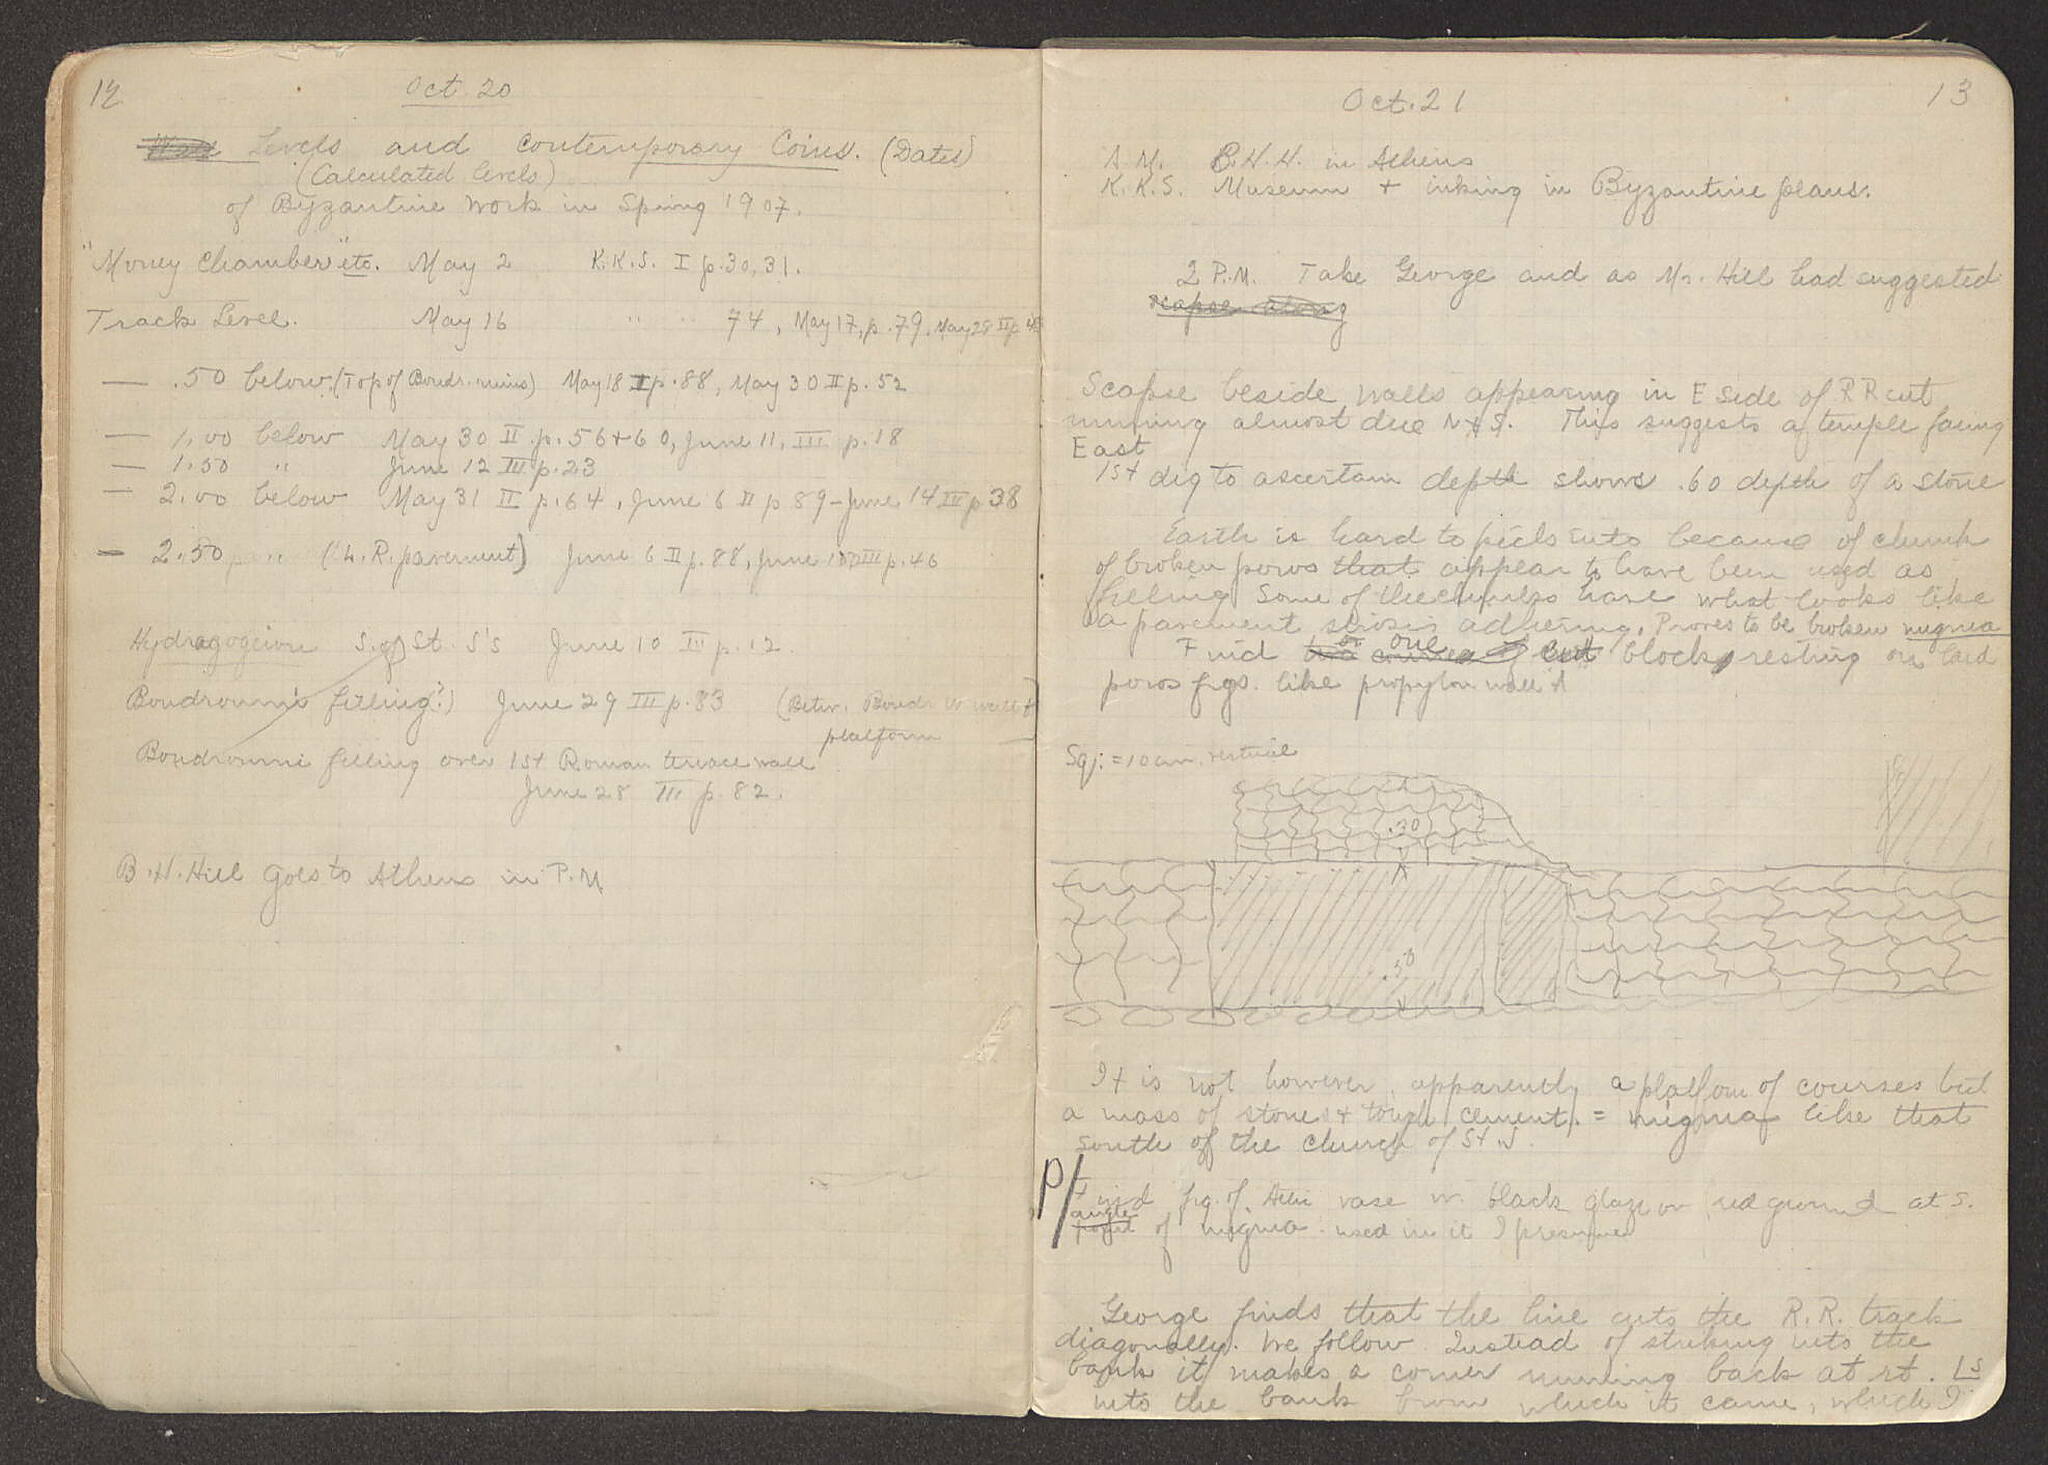 12
Oct 20
Levels and contemporary Coins. (Dates)
(Calculated levels)
of Byzantine work in Spring 1907.
"Money Chamber" etc. May 2 K.K.S. I p.30,31.
Track Level. May 16 " " 74, May 17, p.79, May 28 II p.
— .50 below. (Top of Boudr. ruins) May 18 I p.88, May 30 II p.52
— 1.00 below May 30 II p.56+60, June 11, III p.18
— 1.50 " June 12 III p.23
— 2.00 below May 31 II p.64, June 6 II p 89 – June 14 III p 38
— 2.50 " (L.R. pavement) June 6 II p.88, June III p.46
Hydragogeion S. of St. J's June 10 III p.12.
Boudroumi filling?) June 29 III p.83 (Betw. Boudr. W wall +
platform
Boudroumi filling over 1st Roman terrace wall
June 28 III p.82.
B.H. Hill goes to Athens in P.M.
13
Oct. 21
A.M. B.H.H. in Athens
K.K.S. Museum + inking in Byzantine plans.
2 P.M. Take George and as Mr. Hill had suggested
scapse along
Scapse beside walls appearing in E side of RR cut
running almost due N+S. This suggests a temple facing
East
1st dig to ascertain depth shows .60 depth of a stone
Earth is hard to pick into because of chunks
of broken poros that appear to have been used as
filling Some of the chunks have what looks like
a pavement adhering. Proves to be broken migma
Find or one cut block resting on laid
poros fgs. like propylon wall A
Sq: = 10 cm. vertical
.30
.50
It is not however, apparently a platform of courses but
a mass of stones + tough cement. = migma like that
south of the church of St. J.
P/
Find fg. of Attic vase w. black glaze on red ground at S.
angle
point of migma used in it I presume
George finds that the line cuts the R.R. track
diagonally. We follow. Instead of striking into the
bank it makes a corner running back at rt. Ls
into the bank from which it came, which I